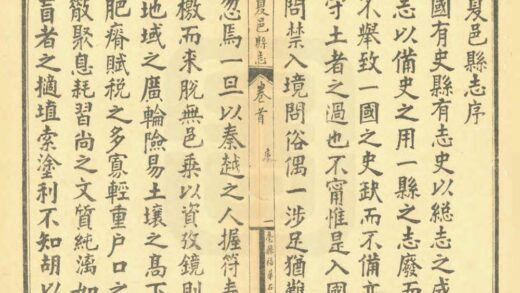 夏邑縣志序
國有史縣有志史以總志之
志以備史之用一縣之志廢而
不舉致一國之史缺而不備亦
守土者之過也不甯惟是入國
問禁入境問俗偶一涉足猶難
夏邑縣志
卷首
序
一
忽焉一旦以秦越之人握符
檄而來脫無邑乘以資攷鏡則
地域之廣輪險易土壤之高下
肥瘠賦稅之多寡輕重戶口之
散聚息耗習尚之文質純漓如
盲者之擿埴索塗利不知胡以